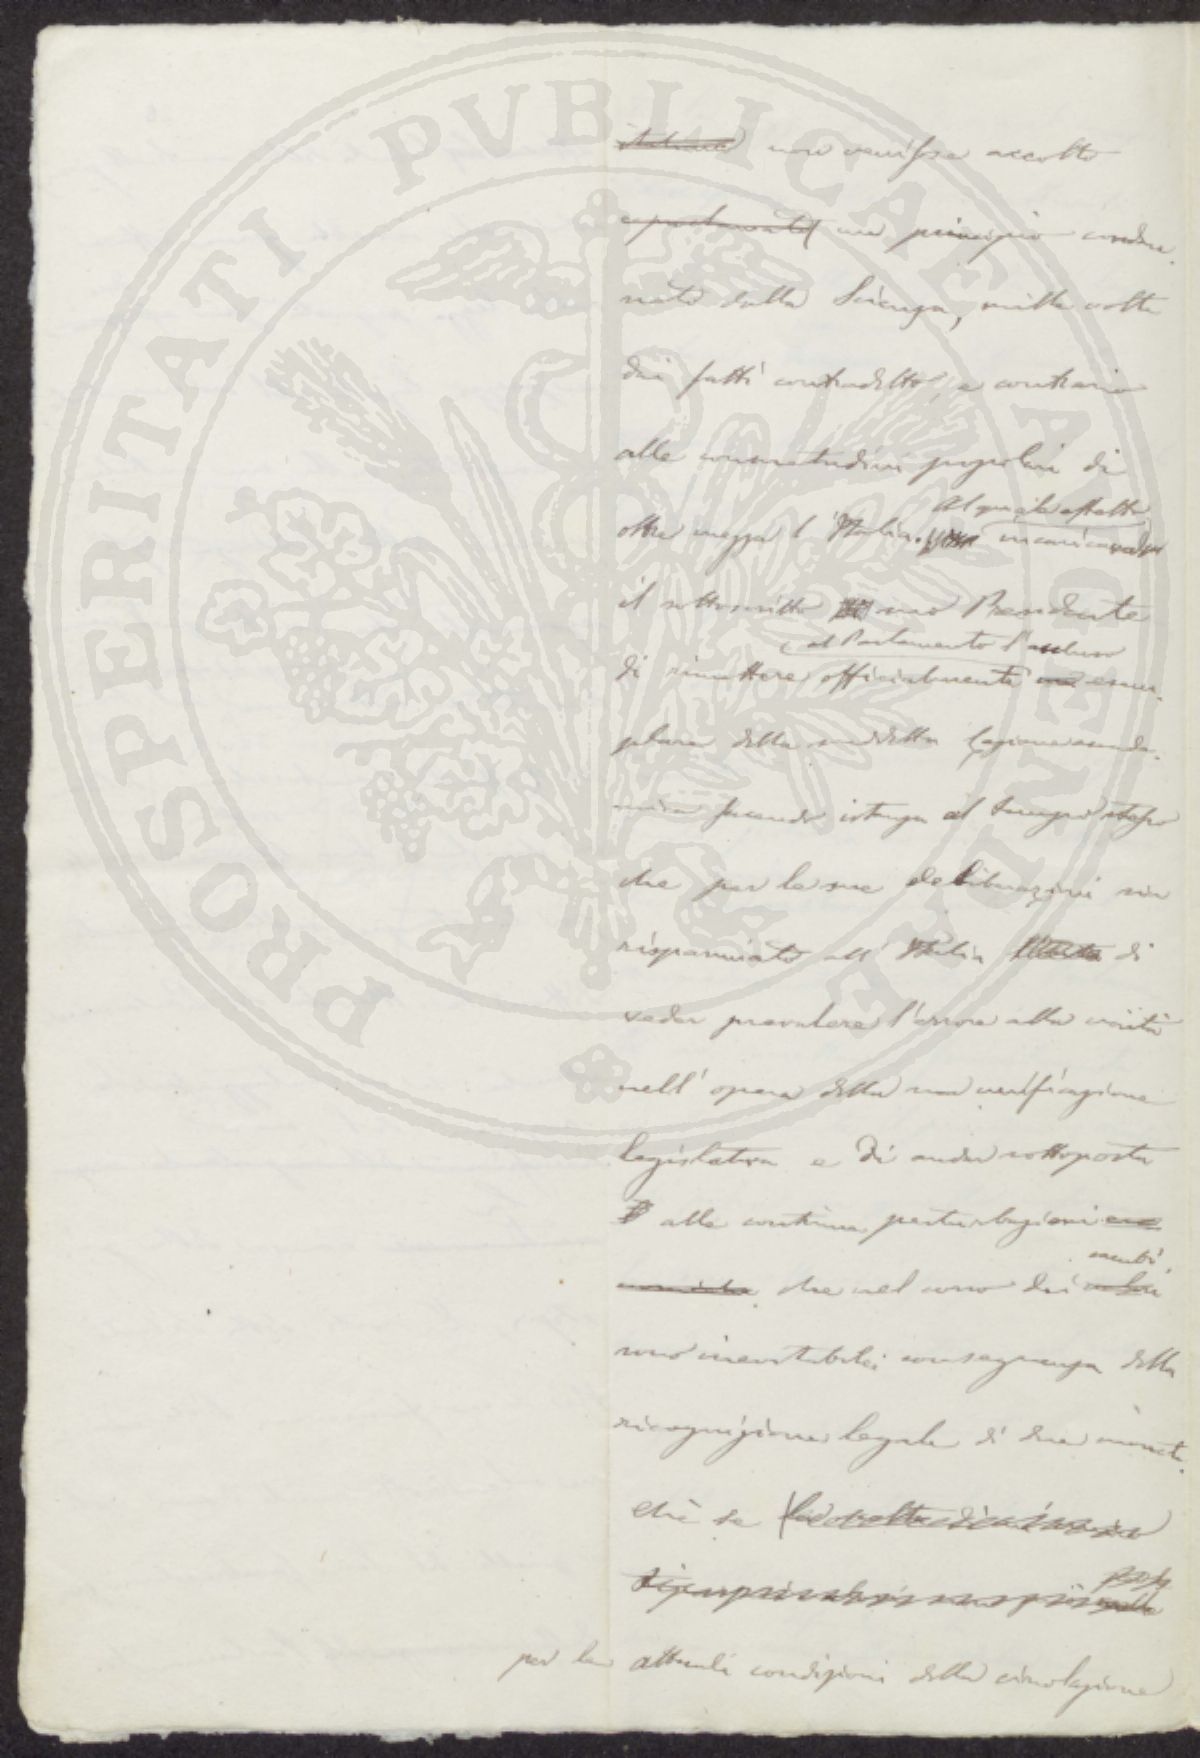 PROSPERITATI PVBLICAE AVGENDAE
italiano non venisse accolto
e proclamato un principio condan-
nato dalla Scienza, mille volte
dai fatti contradetto, e contrario
alle consuetudini popolari di
al quale effetto
oltre mezza l'Italia. incaricava
il sottoscritto suo Presidente
al Parlamento l'accluso
di rimettere officialmente un esem-
plare della suddetta
facendo istanza al tempo stesso
che per le sue deliberazioni sia
risparmiato all'Italia di
veder prevalere l'errore alla verità
nell'opera della sua unificazione
legislativa e di andar sottoposta
alle continue perturbazioni
cambi,
che nel corso dei valori
sono inevitabili conseguenza della
ricognizione legale di due monete.
Chè se
per le attuali condizioni della circolazione